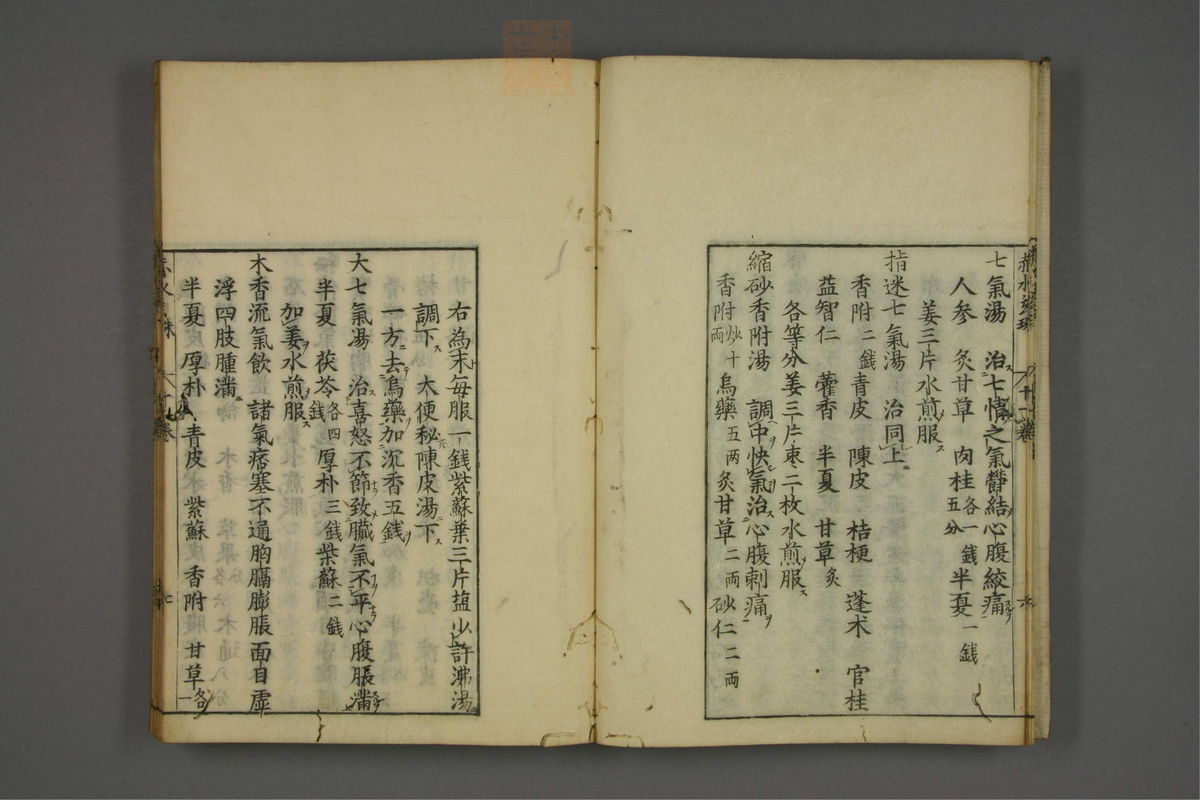 七氣湯　治七情之氣欝結心腹絞痛
人参　炙甘草　肉桂各一錢五分　半夏一錢
姜三片水煎服
指迷七氣湯　治同上
香附二錢青皮　陳皮　桔梗　蓬术　官桂
益智仁　藿香　半夏　甘草炙
各等分姜三片枣二枚水煎服
縮砂香附湯　調中快氣治心腹刺痛
香附炒十両　烏藥五両　炙甘草二両　砂仁二両
右為末每服一錢紫蘇葉三片塩少許沸湯
調下　大便秘陳皮湯下
一方去烏藥加沉香五錢
大七氣湯　治喜怒不節致臓氣不平心腹脹満
半夏　茯苓各四錢　厚朴三錢紫蘇二錢
加姜水煎服
木香流氣飲　諸氣痞塞不通胸膈膨脹面目虛
浮四肢腫満
半夏　厚朴　青皮　紫蘇　香附　甘草各一